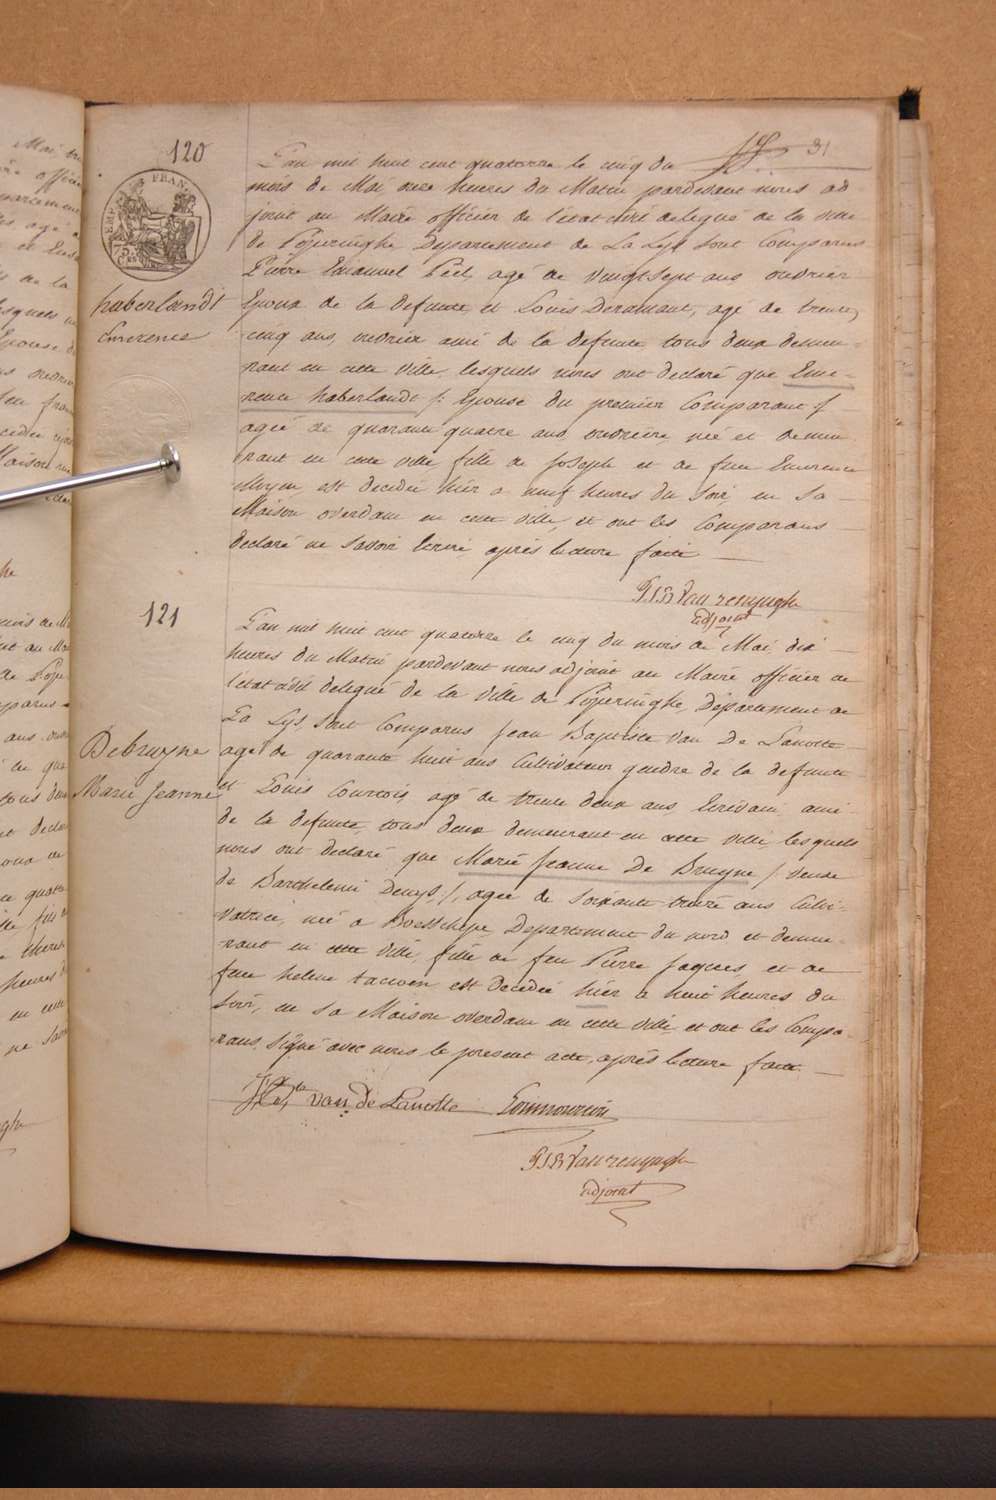 120
31
EMPIRE FRANÇ
75
haberlandt
Emerence
L'an mil huit cent quatorze le cinq du
mois de Mai onze heures du Matin pardevant nous ad
joint au Maire officier de l'état civil delegué de la ville
de Poperinghe Département de La Lys sont Comparus
Pierre Emanuel Peel, agé de vingt-sept ans ouvrier
Epoux de la defunte, et Louis Deramaut, agé de trente
cinq ans, ouvrier ami de la defunte tous deux demeu-
rant en cette ville, lesquels nous ont declaré que Eme-
rence haberlandt /: Epouse du premier Comparant :/
agée de quarante quatre ans, ouvrière, né et demeu
rant en cette ville fille de joseph et de feue Emerence
est decedée hier a neuf heures du soir en sa
Maison overdam en cette ville, et ont les Comparans
declaré ne savoir Ecrire, après lecture faite
P J B Van renynghe
adjoint
121
Debruyne
Marie Jeanne
L'an mil huit cent quatorze le cinq du mois de Mai dix
heures du Matin pardevant nous adjoint au Maire officier de
l'état civil delegué de la ville de Poperinghe, Département de
La Lys, sont Comparus jean Baptiste Van De Lanotte
agé de quarante huit ans Cultivateur gendre de la defunte
et Louis Courtois, agé de trente deux ans, Ecrivain ami
de la defunte, tous deux demeurant en cette ville, lesquels
nous ont declaré que Marie jeanne De Bruyne /: veuve
de Barthelemi Denys :/, agée de soixante treize ans Culti-
vatrice, né a Boesschepe Département du nord et demeu-
rant en cette ville, fille de feu Pierre jaques et de
feue helene tacoen est Decedée hier a huit heures du
soir, en sa Maison overdam en cette ville et ont les Compa-
rans, signé avec nous le present acte, après lecture faite.
van De Lanotte
P J B Van renynghe
adjoint